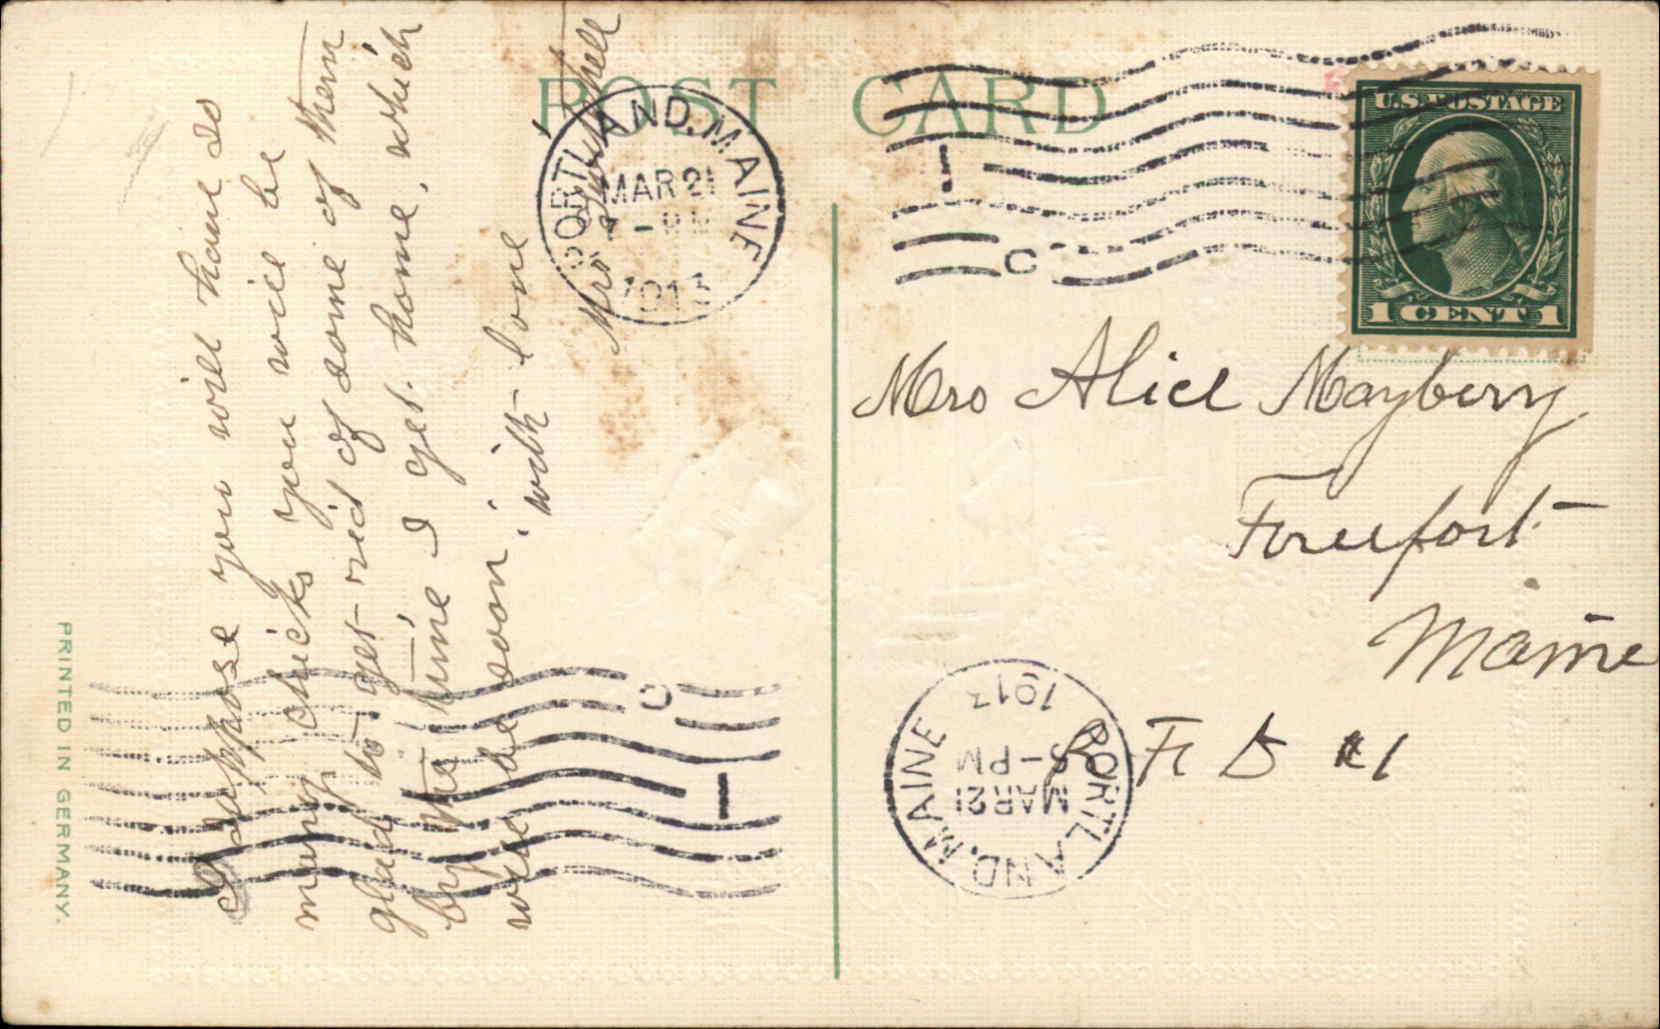 POST CARD
U.S. POSTAGE
1 CENT 1
PORTLAND, MAINE
MAR 21
1913
C
I suppose you will have so
many chicks you will be
glad to get rid of some of them
by the time I get home, which
will be soon. with love
Mrs
Mrs Alice Mayberry
Freeport
Maine
R F D #1
PORTLAND, MAINE
MAR 21
- PM
1913
C
PRINTED IN GERMANY.